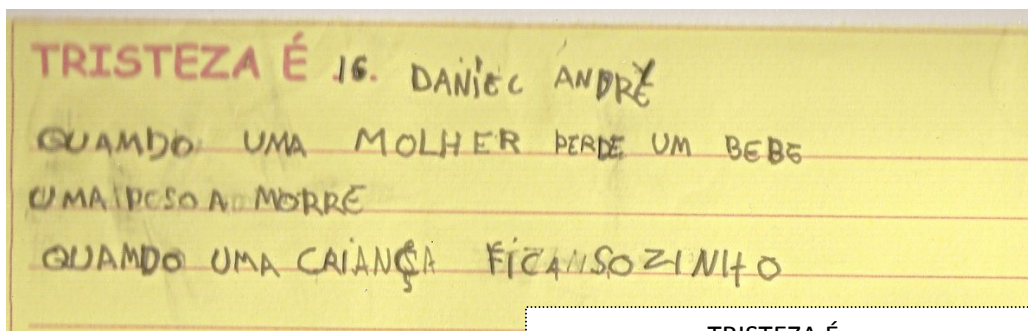 TRISTEZA É 16. DANIEL ANDRÉ
QUAMDO UMA MOLHER PERDE UM BEBE
UMA PESOA MORRE
QUAMDO UMA CRIANÇA FICANSOZINHO
TRISTEZA É